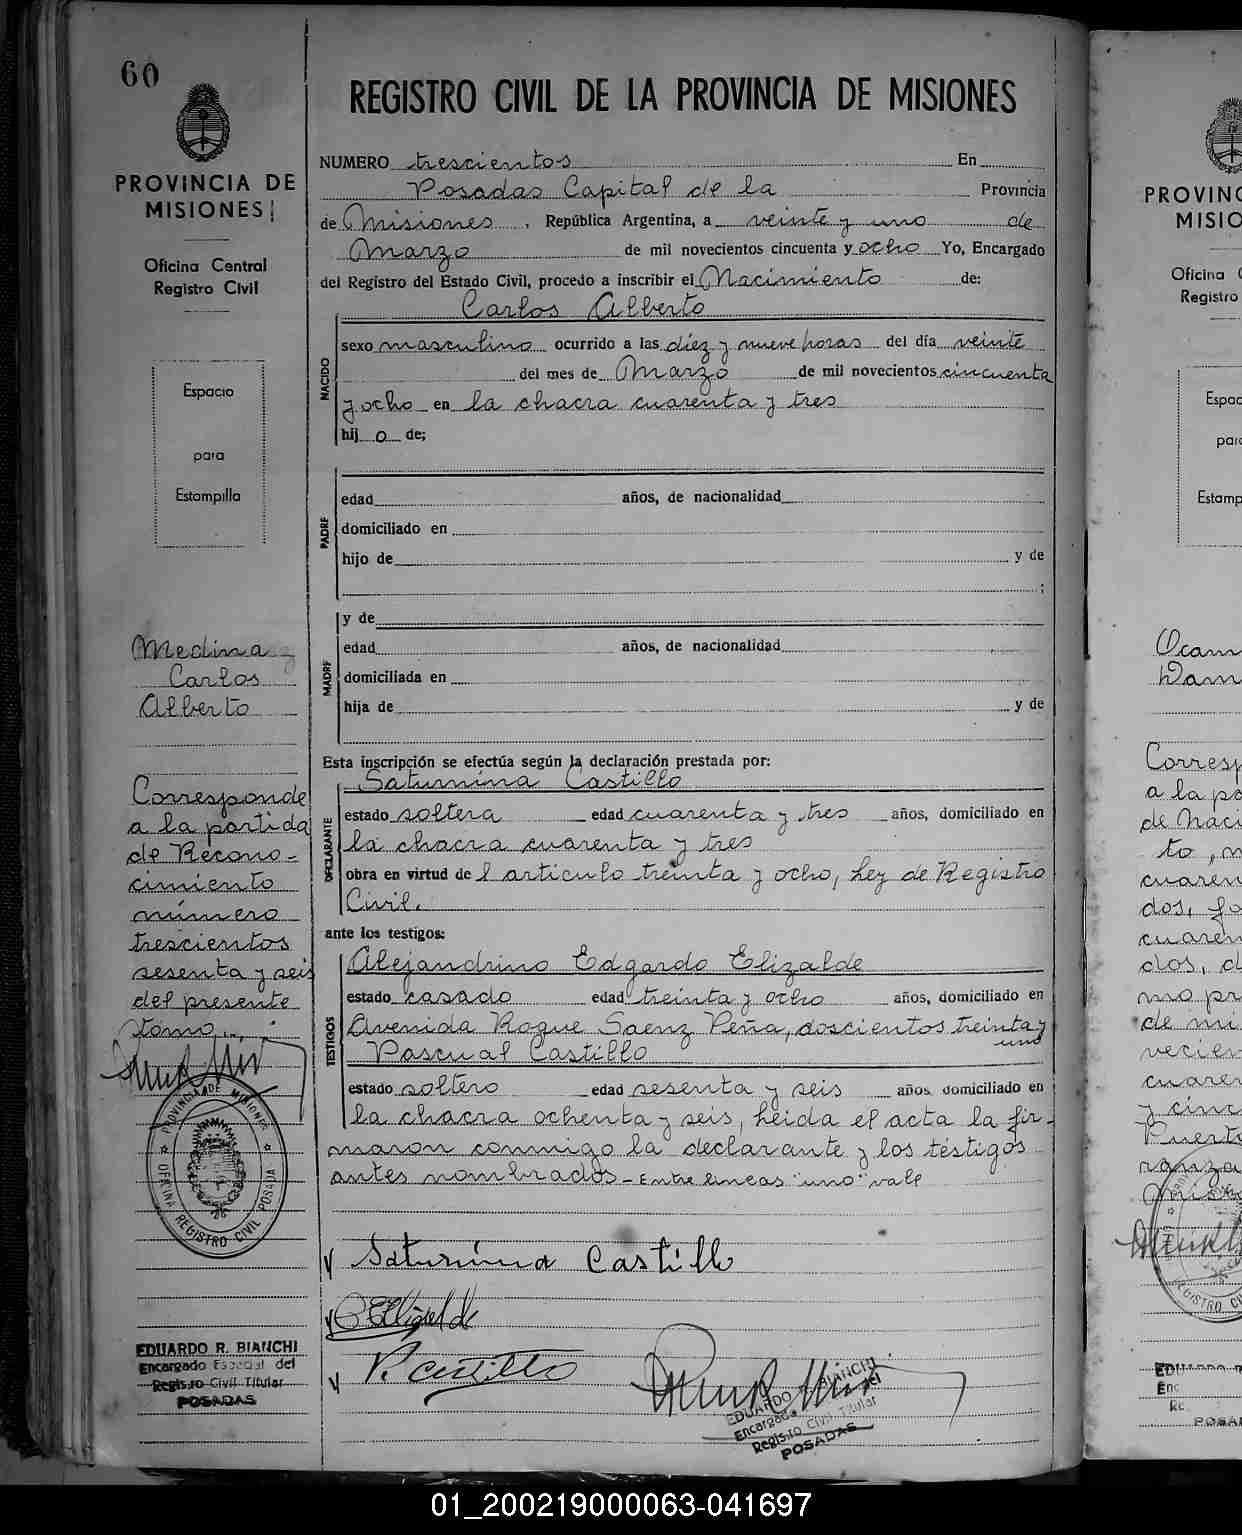 60
PROVINCIA DE
MISIONES
Oficina Central
Registro Civil
Espacio
para
Estampilla
Medina
Carlos
Alberto
Corresponde
a la partida
de Recono-
cimiento
número
trescientos
sesenta y seis
del presente
tomo.
PROVINCIA DE MISIONES
OFICINA REGISTRO CIVIL POSADAS
EDUARDO R. BIANCHI
Encargado Especial del
Registro Civil Titular
POSADAS
REGISTRO CIVIL DE LA PROVINCIA DE MISIONES
NUMERO trescientos En
Posadas Capital de la Provincia
de Misiones, República Argentina, a veinte y uno de
Marzo de mil novecientos cincuenta y ocho Yo, Encargado
del Registro del Estado Civil, procedo a inscribir el Nacimiento de:
Carlos Alberto
NACIDO
sexo masculino ocurrido a las diez y nueve horas del día veinte
del mes de Marzo de mil novecientos cincuenta
y ocho en la chacra cuarenta y tres
hij o de;
PADRE
edad años, de nacionalidad
domiciliado en
hijo de y de
;
MADRE
y de
edad años, de nacionalidad
domiciliada en
hija de y de
Esta inscripción se efectúa según la declaración prestada por:
Saturnina Castillo
DECLARANTE
estado soltera edad cuarenta y tres años, domiciliado en
la chacra cuarenta y tres
obra en virtud de l articulo treinta y ocho, Ley de Registro
Civil.
ante los testigos:
Alejandrino Edgardo Elizalde
TESTIGOS
estado casado edad treinta y ocho años, domiciliado en
Avenida Roque Saenz Peña, doscientos treinta y
uno
Pascual Castillo
estado soltero edad sesenta y seis años, domiciliado en
la chacra ochenta y seis, leida el acta la fir-
maron conmigo la declarante y los téstigos
antes nombrados - Entre lineas "uno" vale
Saturnina Castillo
P. Castillo
EDUARDO R. BIANCHI
Encargado Especial del
Registro Civil Titular
POSADAS
PROVINC
MISIO
Oficina C
Registro
Espac
para
Estamp
Ocam
Corresp
a la pa
de Naci
to, n
cuaren
dos, fo
cuaren
dos, d
mo pr
de mi
vecien
cuaren
y cinc
Puerto
ranza
01_200219000063-041697